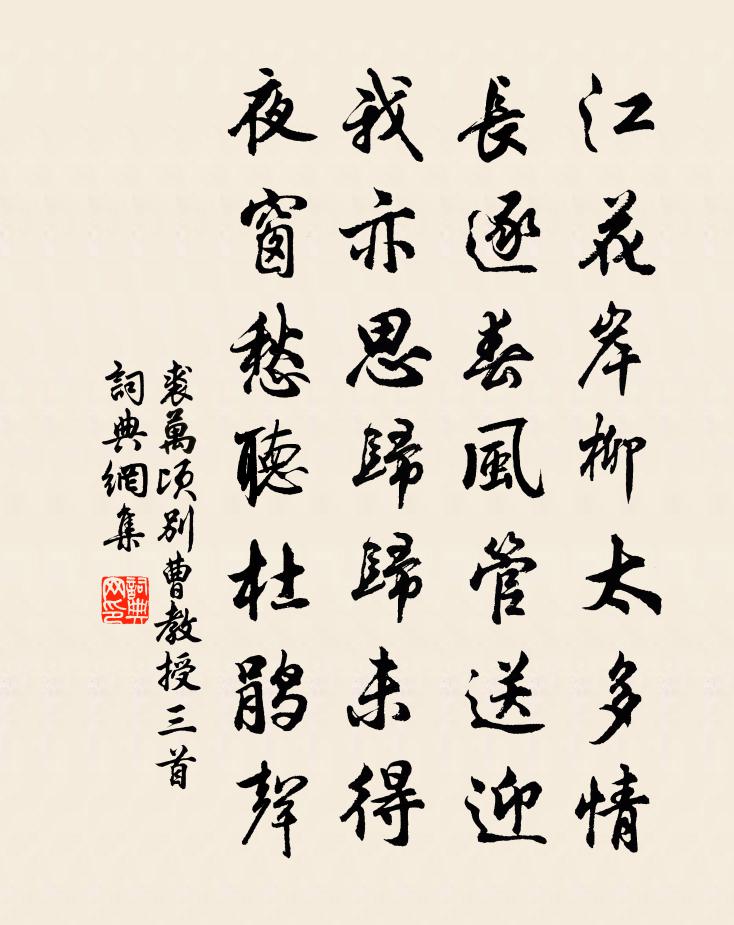 江花岸柳太多情
長逐春風管送迎
我亦思歸歸未得
夜窗愁聽杜鵑聲
裘萬頃別曹教授三首
詞典網集
詞典网印